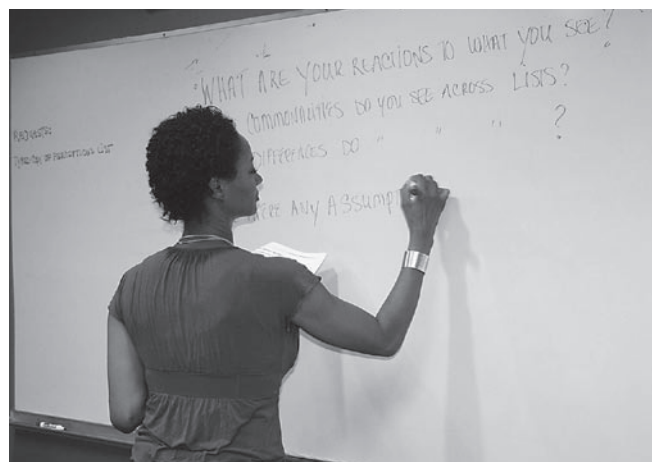 "WHAT ARE YOUR REACTIONS TO WHAT YOU SEE?
COMMONALITIES DO YOU SEE ACROSS LISTS?
DIFFERENCES DO " " " ?
ANY ASSUMPT